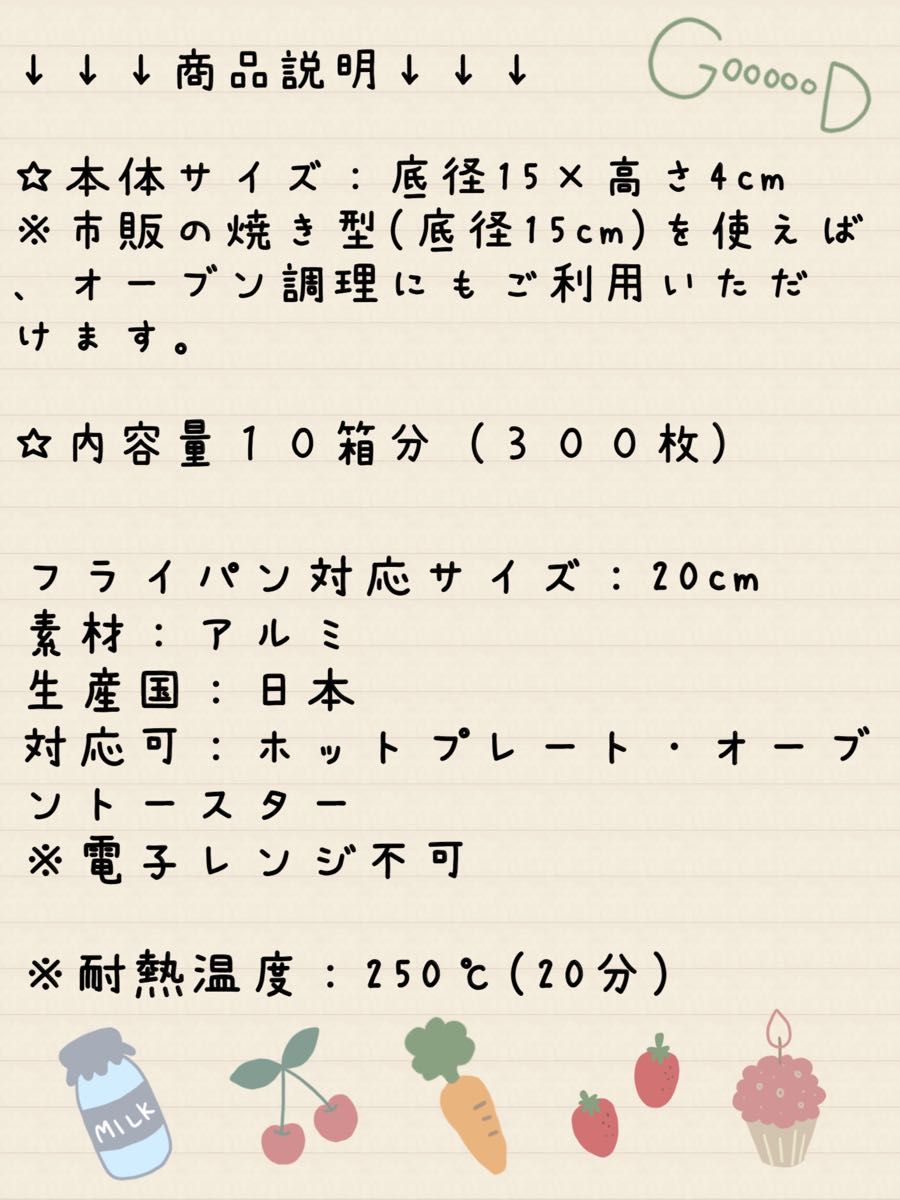 ↓↓↓商品説明↓↓↓
GoooooD
☆本体サイズ：底径15×高さ4cm
※市販の焼き型(底径15cm)を使えば
、オーブン調理にもご利用いただ
けます。
☆内容量１０箱分（３００枚）
フライパン対応サイズ：20cm
素材：アルミ
生産国：日本
対応可：ホットプレート・オーブ
ントースター
※電子レンジ不可
※耐熱温度：250℃(20分)
MILK